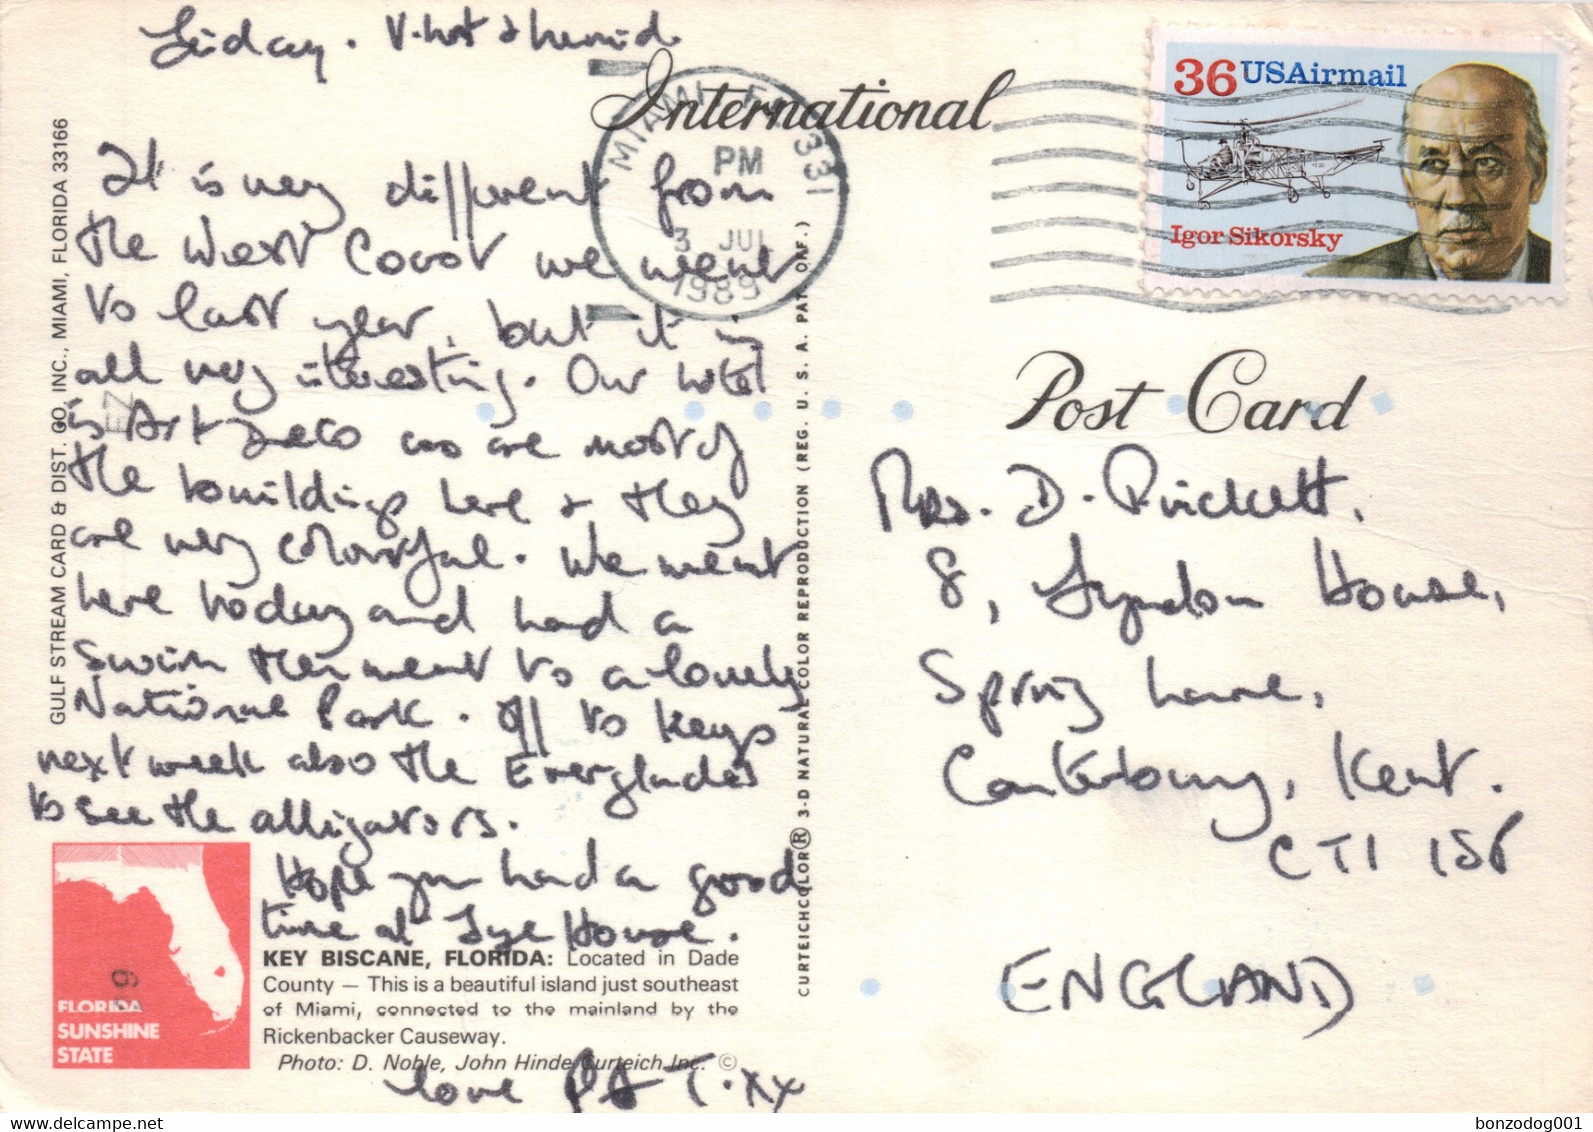 Friday. V. hot & humid.
It is very different from
the West Coast we went
to last year, but it is
all very interesting. Our hotel
is Art Deco as are most of
the buildings here & they
are very colourful. We went
here today and had a
swim then went to a lovely
National Park. Off to Keys
next week also the Everglades
to see the alligators.
Hope you had a good
time at Lye House.
love P & T. xx
KEY BISCANE, FLORIDA: Located in Dade
County — This is a beautiful island just southeast
of Miami, connected to the mainland by the
Rickenbacker Causeway.
Photo: D. Noble, John Hinde Curteich Inc. ©
FLORIDA
SUNSHINE
STATE
GULF STREAM CARD & DIST. CO. INC., MIAMI, FLORIDA 33166
EZ
69
CURTEICHCOLOR® 3-D NATURAL COLOR REPRODUCTION (REG. U. S. A. PAT. OFF.)
International
MIAMI, FL 331
PM
3 JUL
1989
36 USAirmail
Igor Sikorsky
Post Card
Mrs. D. Prickett,
8, Lyndon House,
Spring Lane,
Canterbury, Kent.
CT1 1SP
ENGLAND
bonzodog001